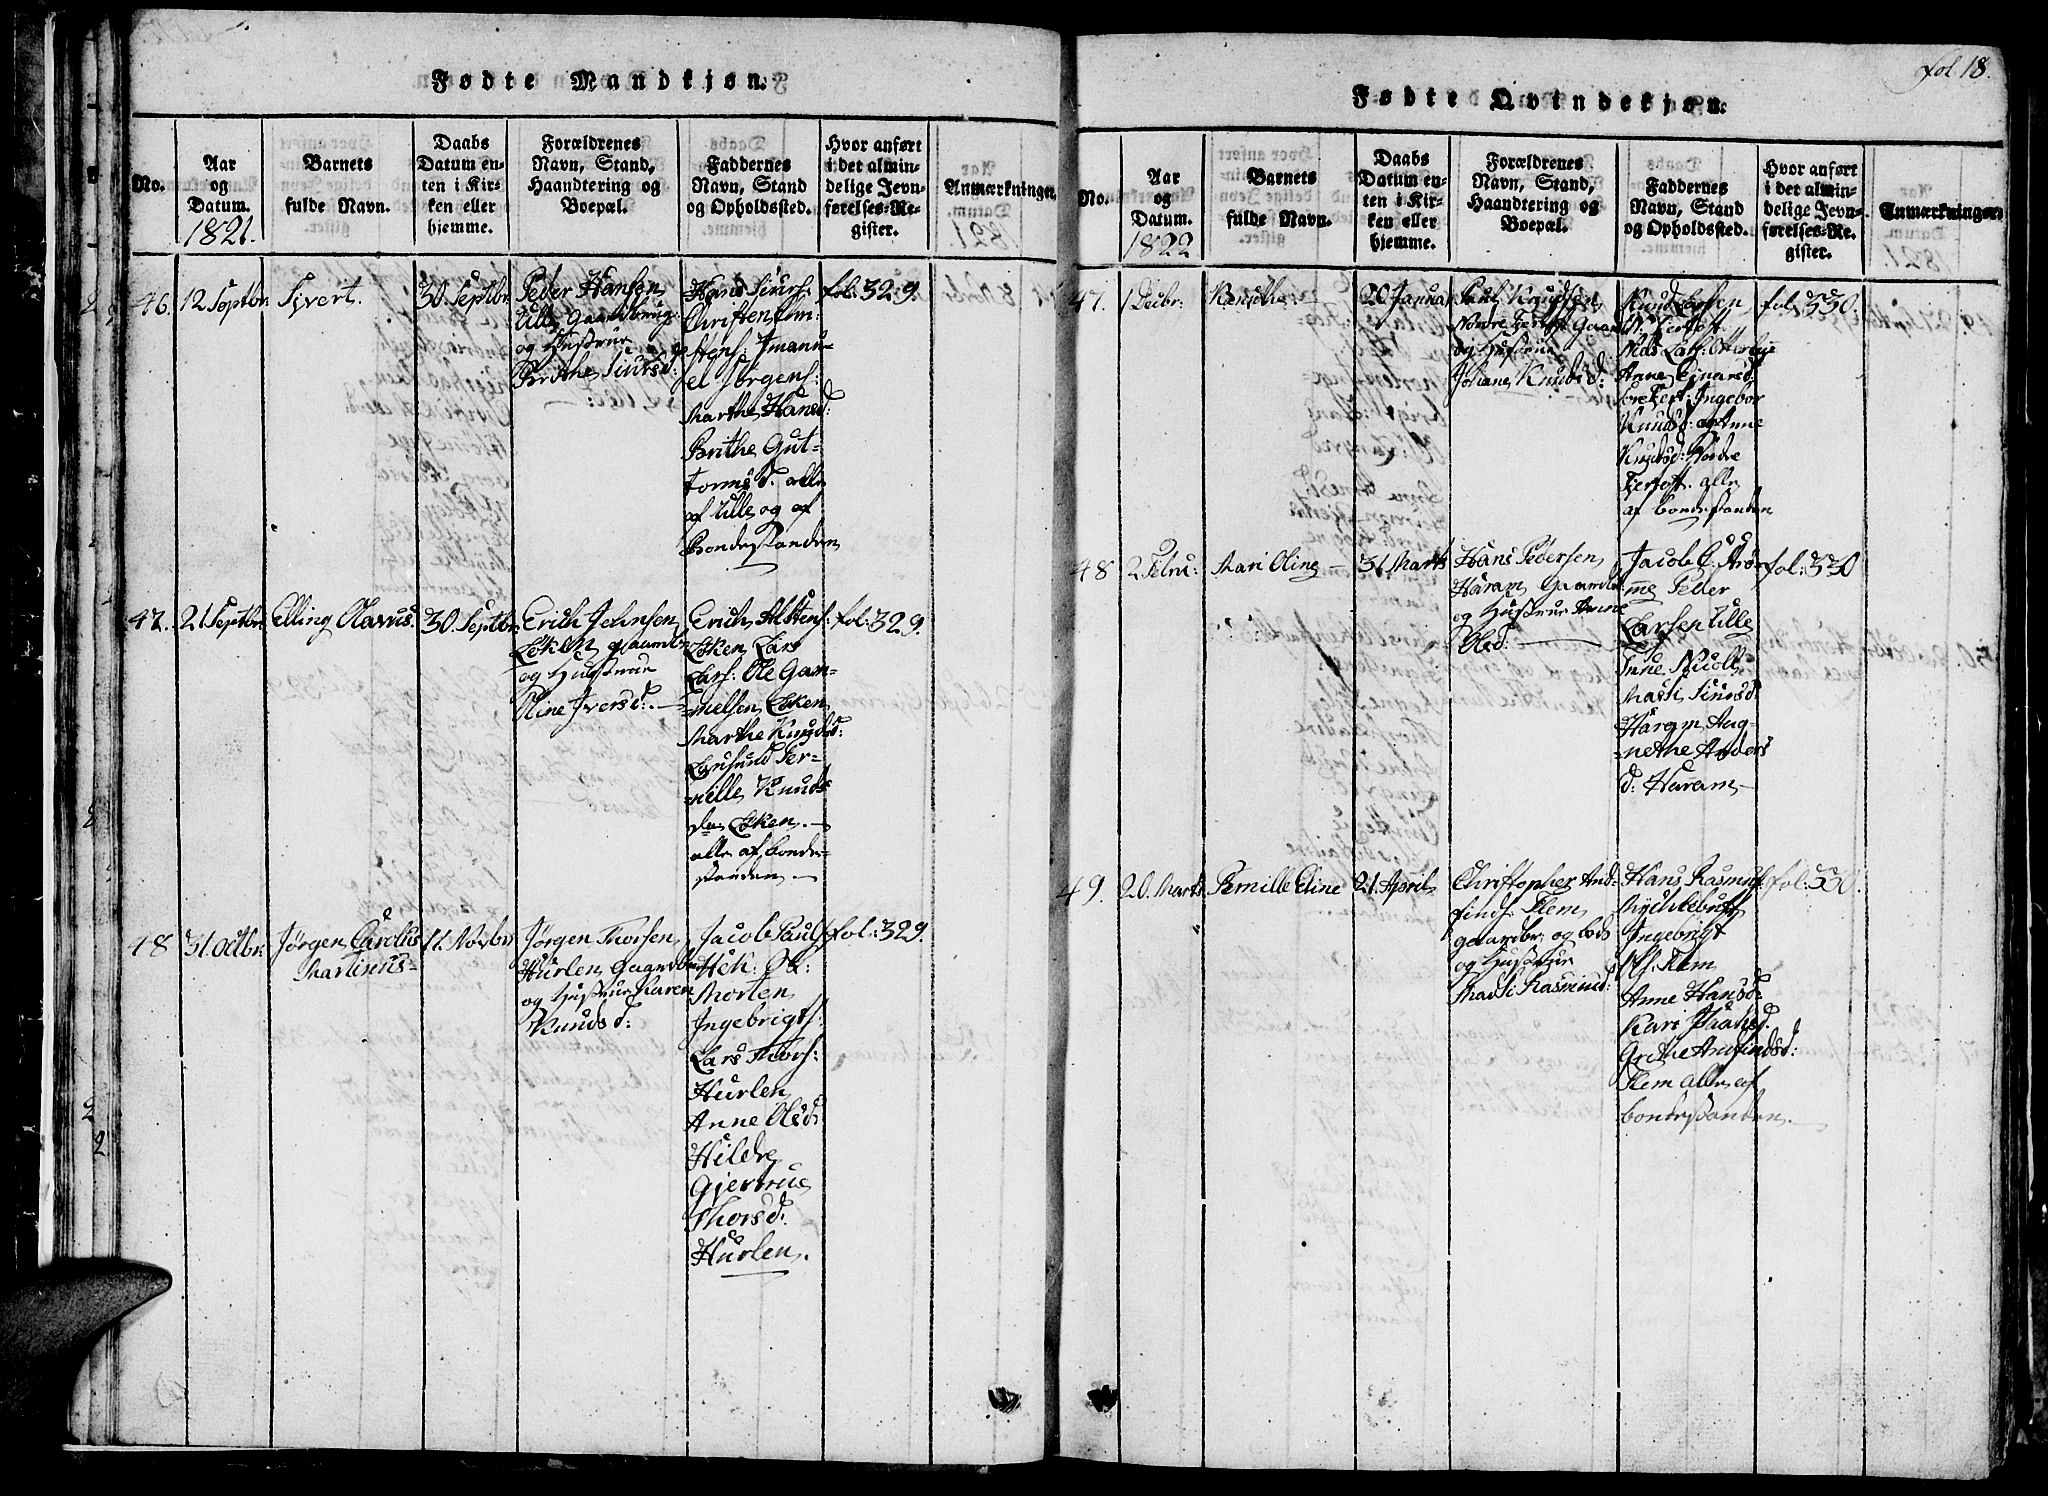 Fødte Mandkjøn.
No.
Aar
og
Datum.
1821.
Barnets
fulde Navn.
Daabs
Datum en-
ten i Kir-
ken eller
hjemme.
Forældrenes
Navn, Stand,
Haandtering og
Boepæl.
Faddernes
Navn, Stand
og Opholdssted.
Hvor anført
i det almin-
delige Jevn-
førelses-Re-
gister.
Anmærkninger.
46.
12 Septbr.
Sivert.
30 Septbr.
Peder Hansen
Ulle Gaardbrug:
og Hustrue
Brithe Siursd:
Hans Siurs:
Christen
Imanu-
el Jørgens:
Marthe Hansd:
Brithe Gut-
tormsd. alle
af Ulle og af
Bondestanden
fol: 329.
47.
21 Septbr.
Elling Olavus.
30 Septbr.
Erich Johnsen
Løken gaardbr
og Hustrue
Oline Iversd:
Erich
Løken Lars
Lars: Ole Gam-
melsen Løken
Marthe Knudsd:
Per-
nille Knuds
da Løken.
alle af bonde-
standen.
fol: 329.
48
31. Octbr.
Jørgen Carolus
Martinus
11. Novbr
Jørgen Thorsen
Hurlen Gaardbr
og Hustrue Karen
Knudsd:
Jacob Pauls
Morten
Ingebrigts:
Lars Thors:
Hurlen
Anne Olsd:
Hildre
Gjertrue
Thorsd:
Hurlen.
fol: 329.
fol 18.
Fødte Qvindekjøn.
No.
Aar
og
Datum.
1822
Barnets
fulde Navn.
Daabs
Datum en-
ten i Kir-
ken eller
hjemme.
Forældrenes
Navn, Stand,
Haandtering og
Boepæl.
Faddernes
Navn, Stand
og Opholdssted.
Hvor anført
i det almin-
delige Jevn-
førelses-Re-
gister.
Anmærkninger.
47.
1 Decbr.
20 Janua
Paul Knudsen
Nordre Fiertoft Gaard
og Hustrue
Johane Knudsd:
Knud Larsen
N. Fiertoft
Mads Lars:
Anne Einarsd.
Ingebor
Knudsd: og Anne
Knudsd: Nordre
Fiertoft. alle
af bondestanden
fol: 330.
48
2 Febru:
Mari Oline
31 Marts
Hans Pedersen
Haram Gaardb
og Hustrue Anne
Olsd:
Jacob
Peder
Larsen Ulle
Marti Siursd:
Haram Aug-
nethe Anders
d: Haram
fol: 330
49.
20. Marts
Pernille Eline
21. April
Christopher And-
finds: Flem
gaardbr: og
og Hustrue
Marti Rasmusd:
Hans Rasmus:
Mychlebust
Ingebrigt
Ols: Flem
Anne Hansd:
Kari Isachsd.
Grethe Andfindsd:
Flem alle af
bondestanden.
fol: 330.